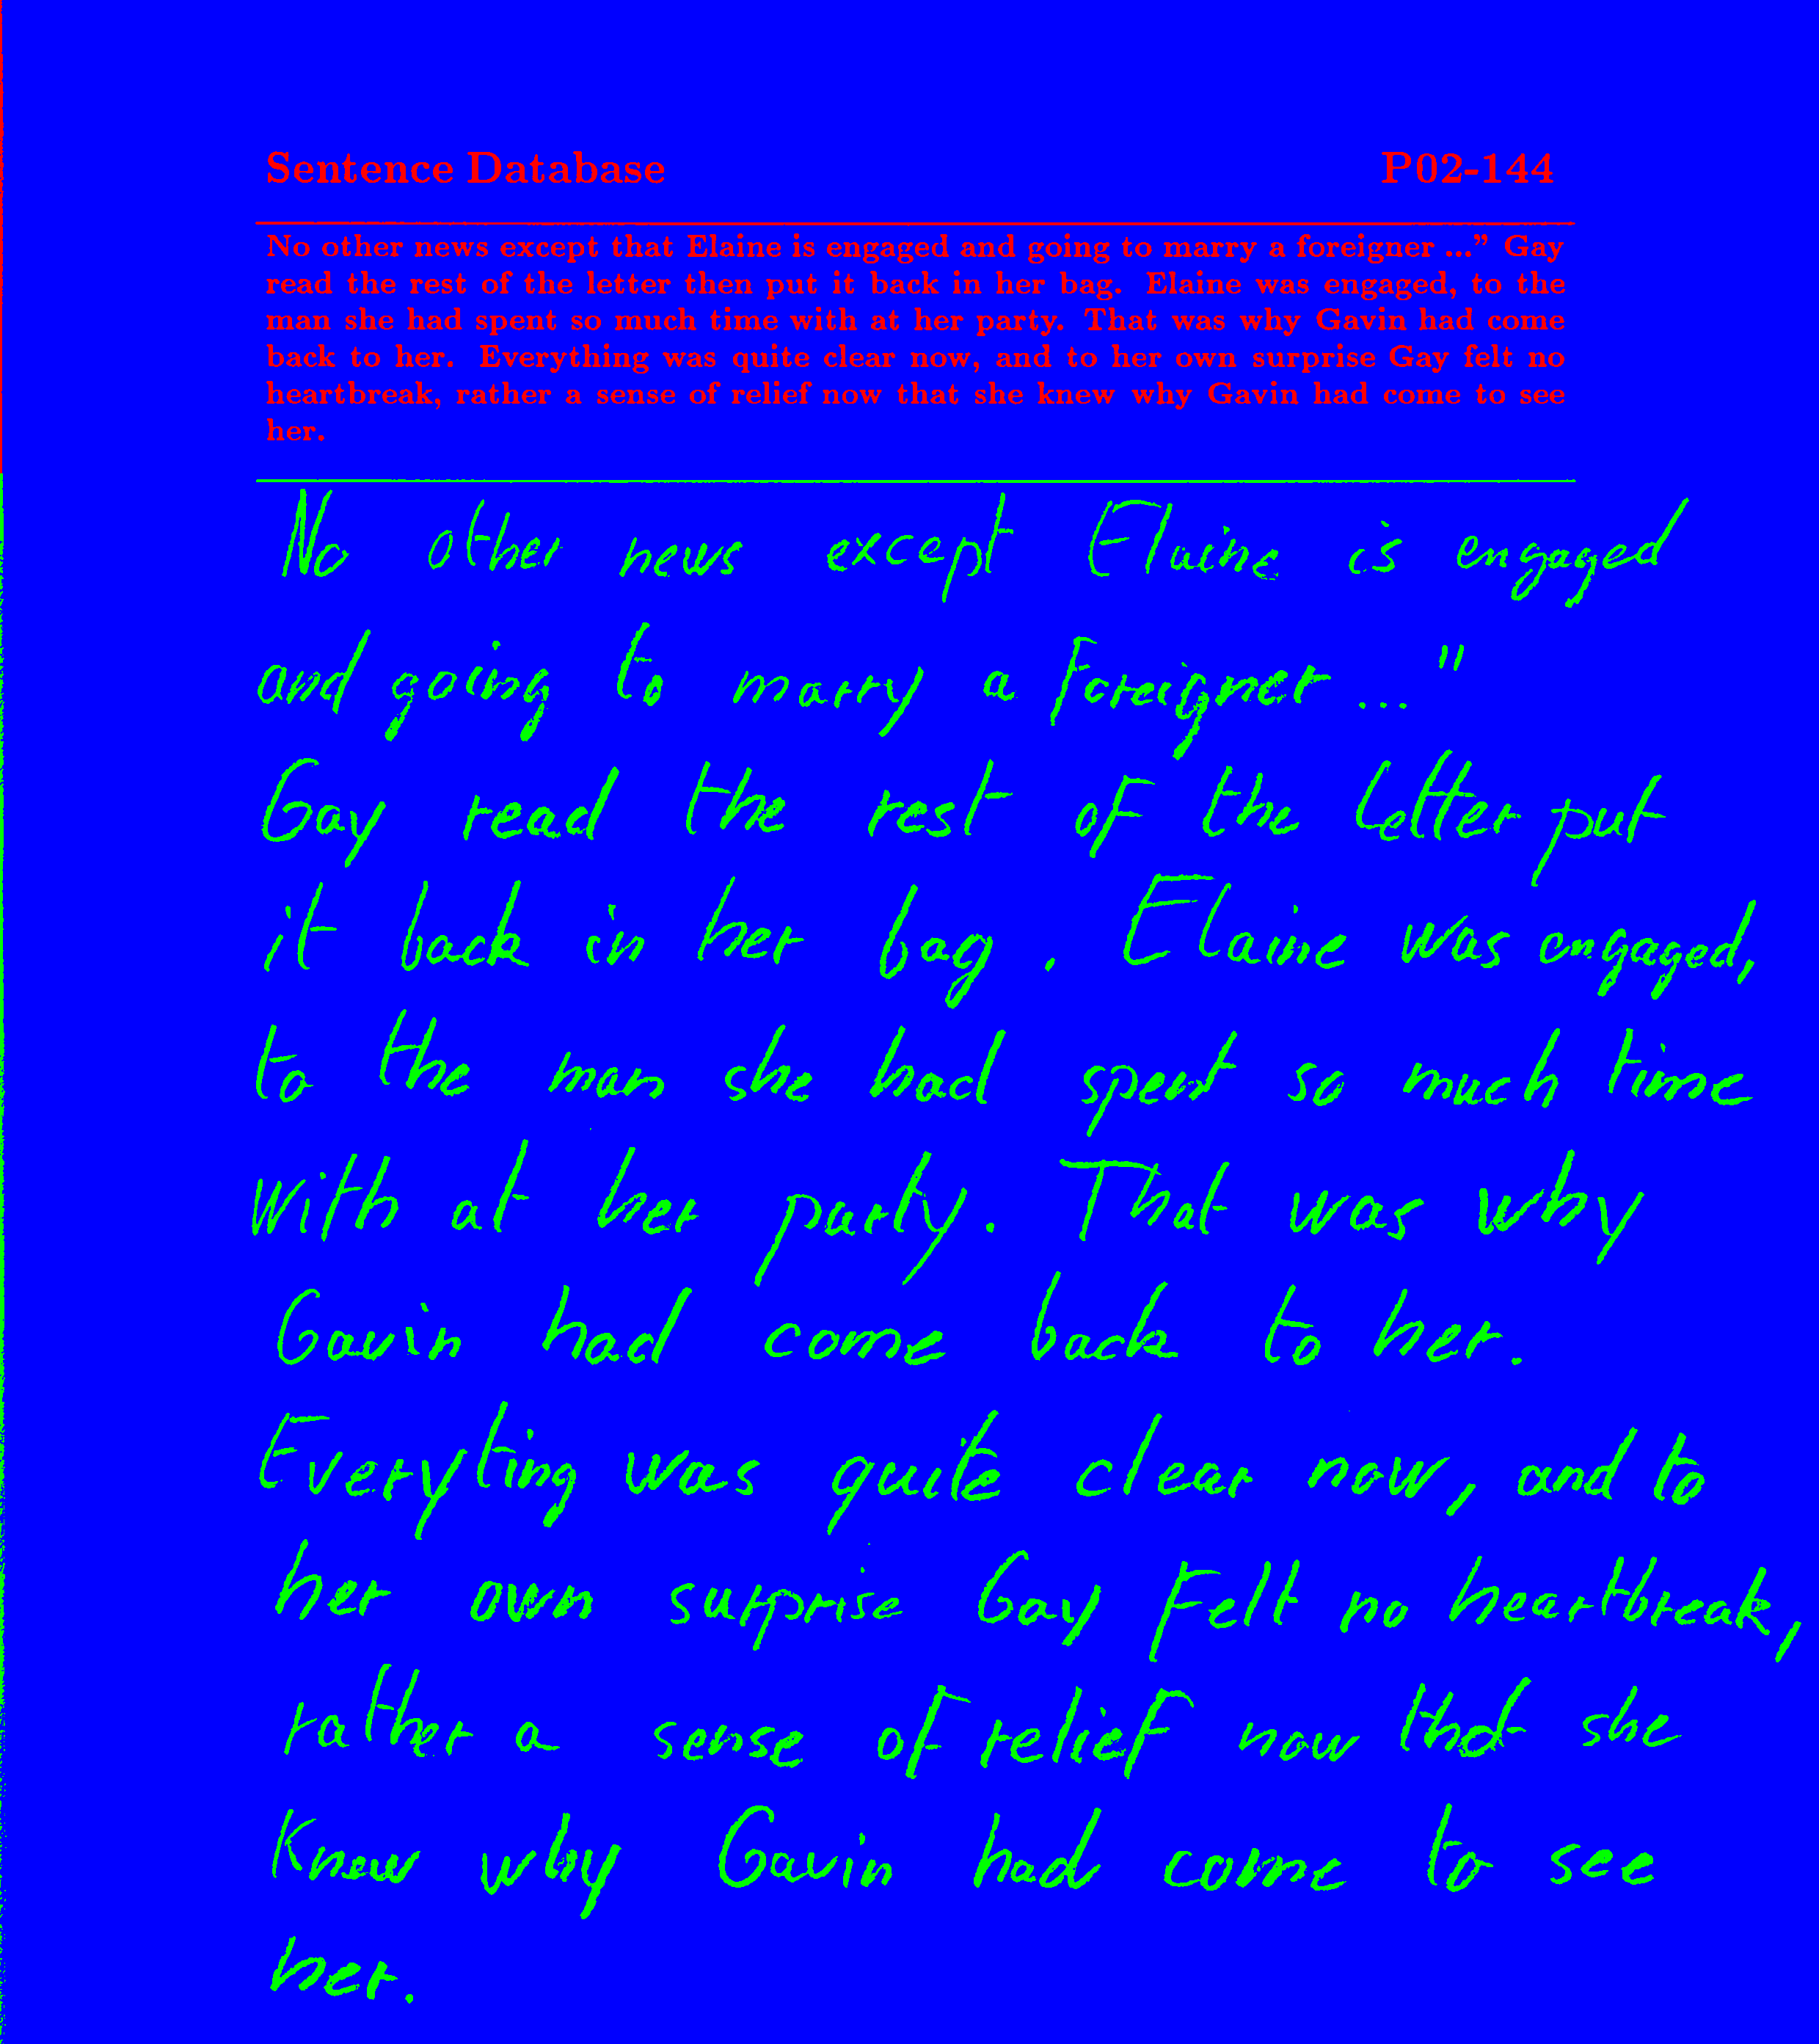 Sentence Database P02-144
No other news except that Elaine is engaged and going to marry a foreigner ..." Gay
read the rest of the letter then put it back in her bag. Elaine was engaged, to the
man she had spent so much time with at her party. That was why Gavin had come
back to her. Everything was quite clear now, and to her own surprise Gay felt no
heartbreak, rather a sense of relief now that she knew why Gavin had come to see
her.
No other news except Elaine is engaged
and going to marry a foreigner ..."
Gay read the rest of the letter put
it back in her bag. Elaine was engaged,
to the man she had spent so much time
with at her party. That was why
Gavin had come back to her.
Everyting was quite clear now, and to
her own surprise Gay felt no heartbreak,
rather a sense of relief now that she
knew why Gavin had come to see
her.